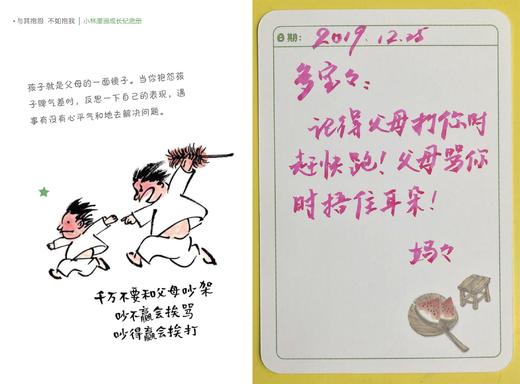 ·与其抱怨 不如抱我 | 小林漫画成长纪念册
孩子就是父母的一面镜子。当你抱怨孩
子脾气差时，反思一下自己的表现，遇
事有没有心平气和地去解决问题。
千万不要和父母吵架
吵不赢会挨骂
吵得赢会挨打
日期：2019.12.25
多宝々：
记得父母打你时
赶快跑！父母骂你
时捂住耳朵！
妈々